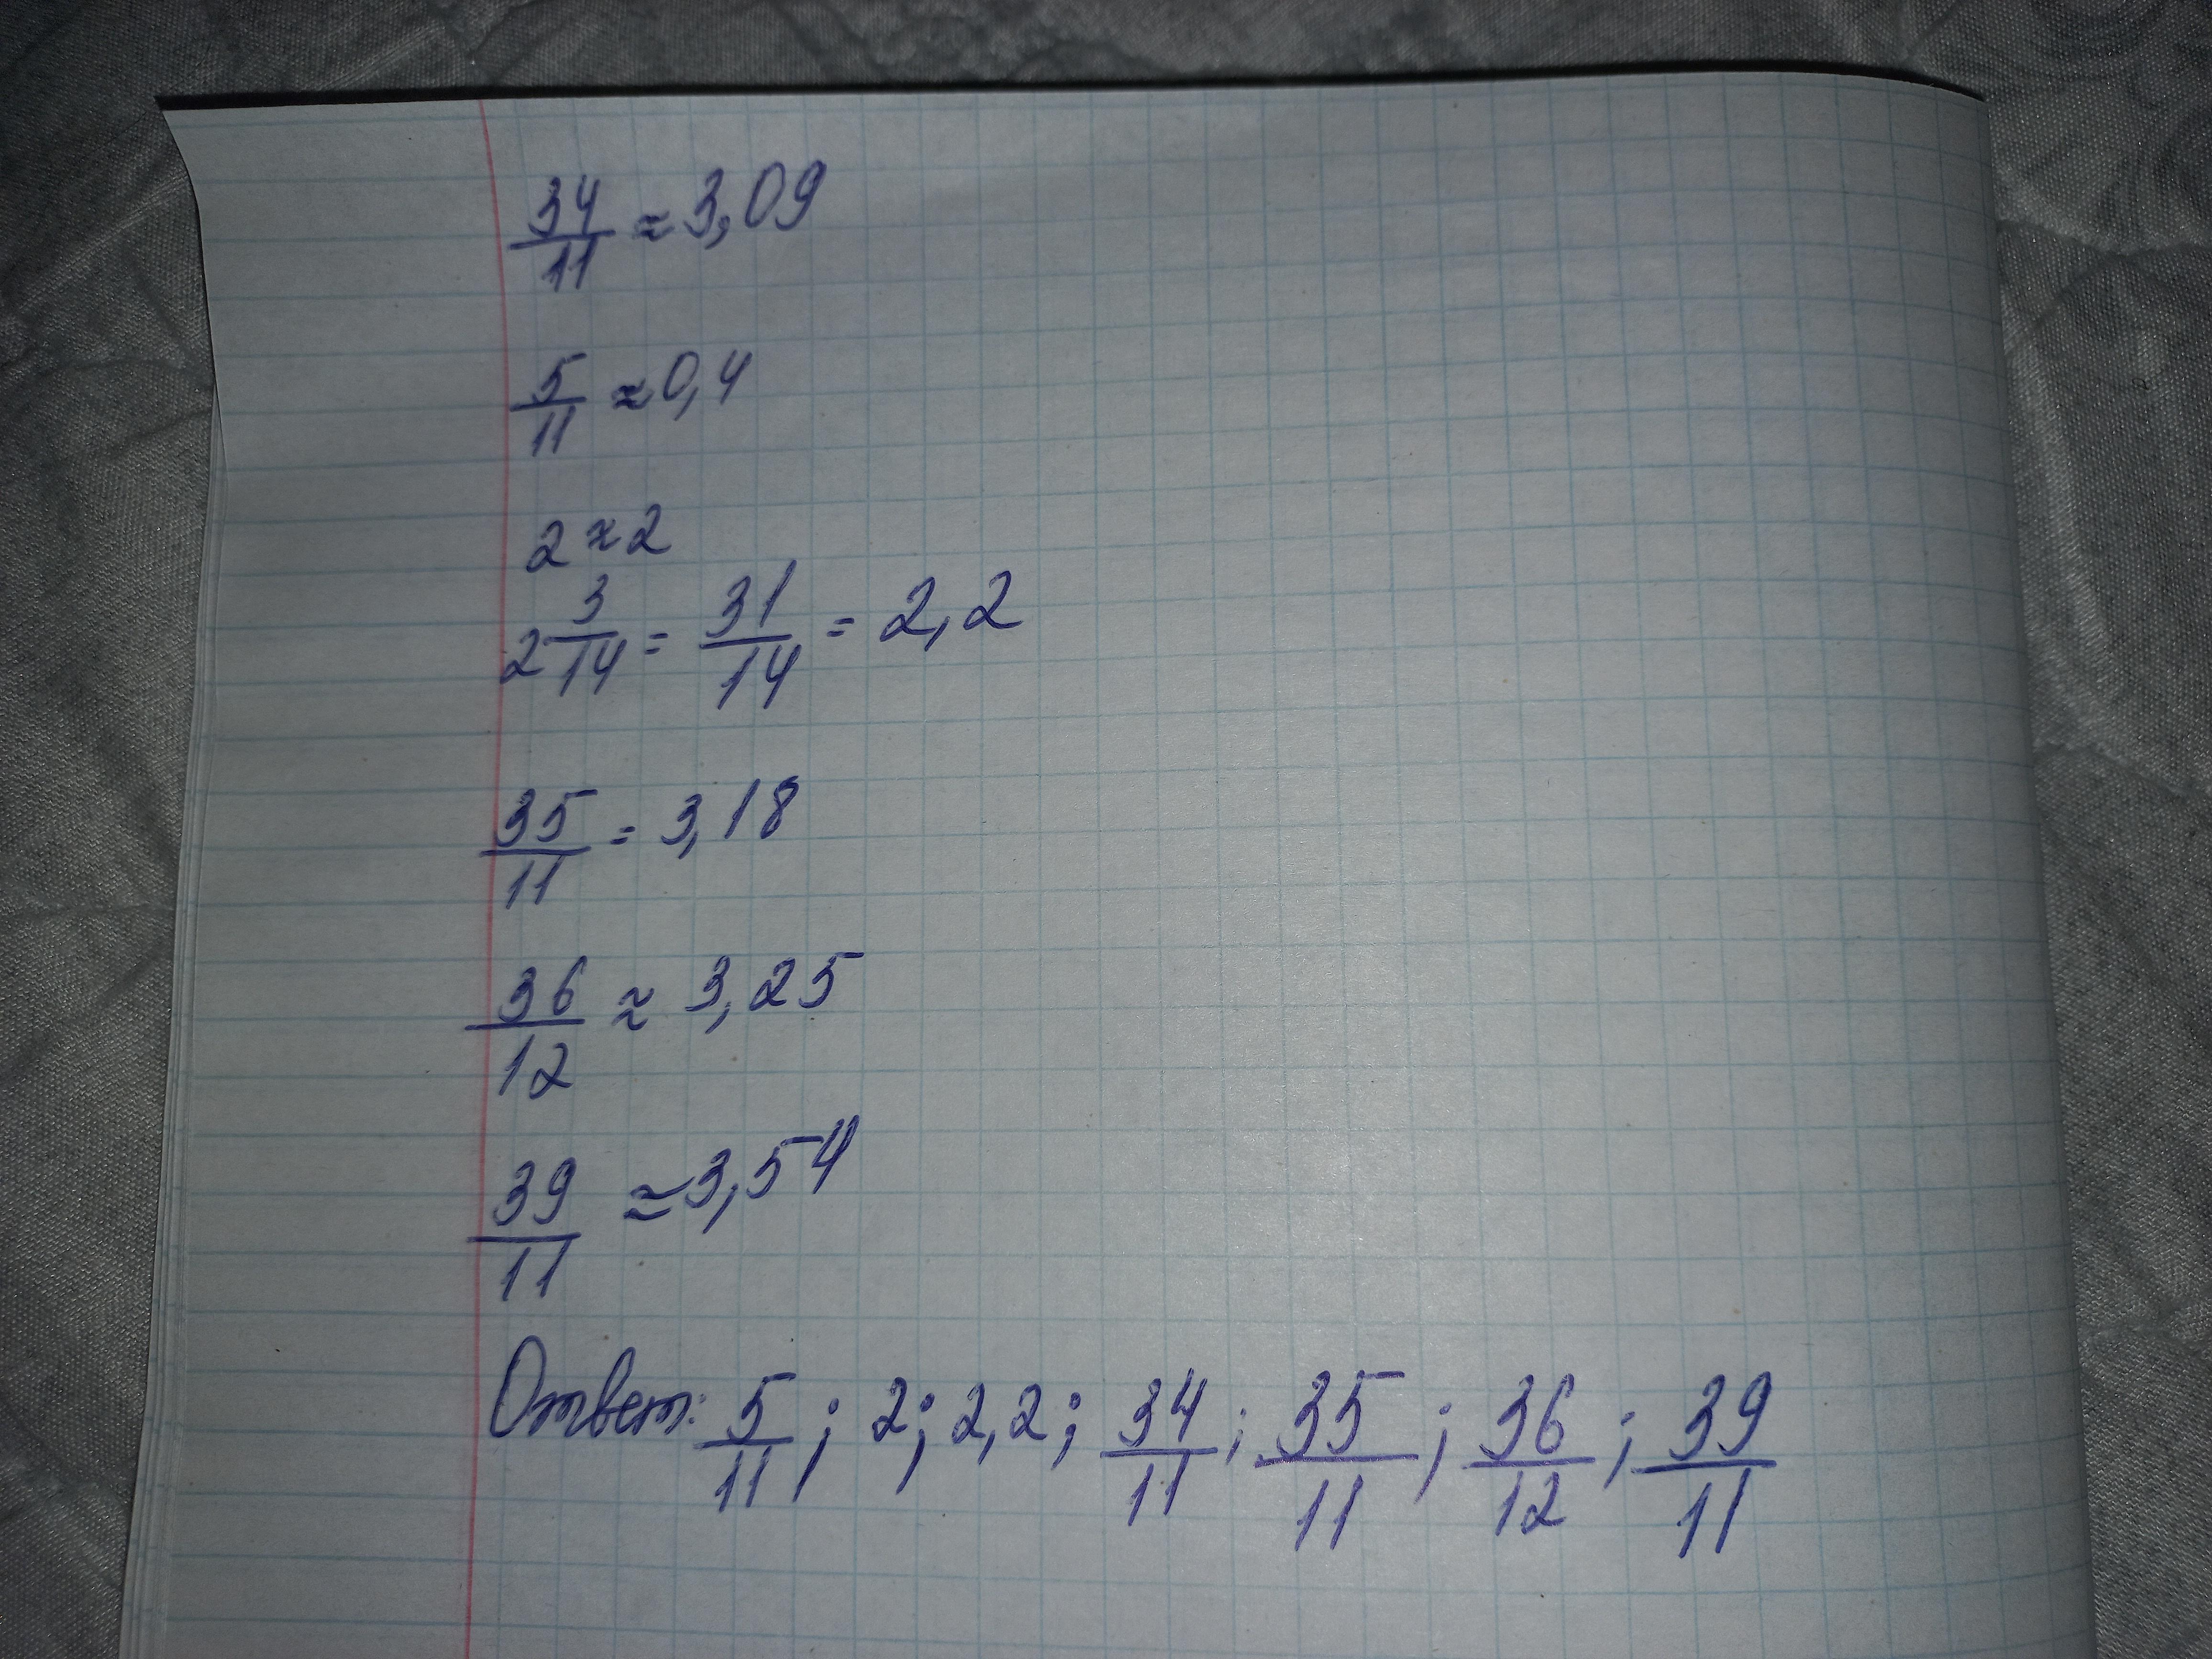 34/11 ≈ 3,09
5/11 ≈ 0,4
2 ≈ 2
2 3/14 = 31/14 = 2,2
35/11 = 3,18
36/12 ≈ 3,25
39/11 ≈ 3,54
Ответ: 5/11; 2; 2,2; 34/11; 35/11; 36/12; 39/11